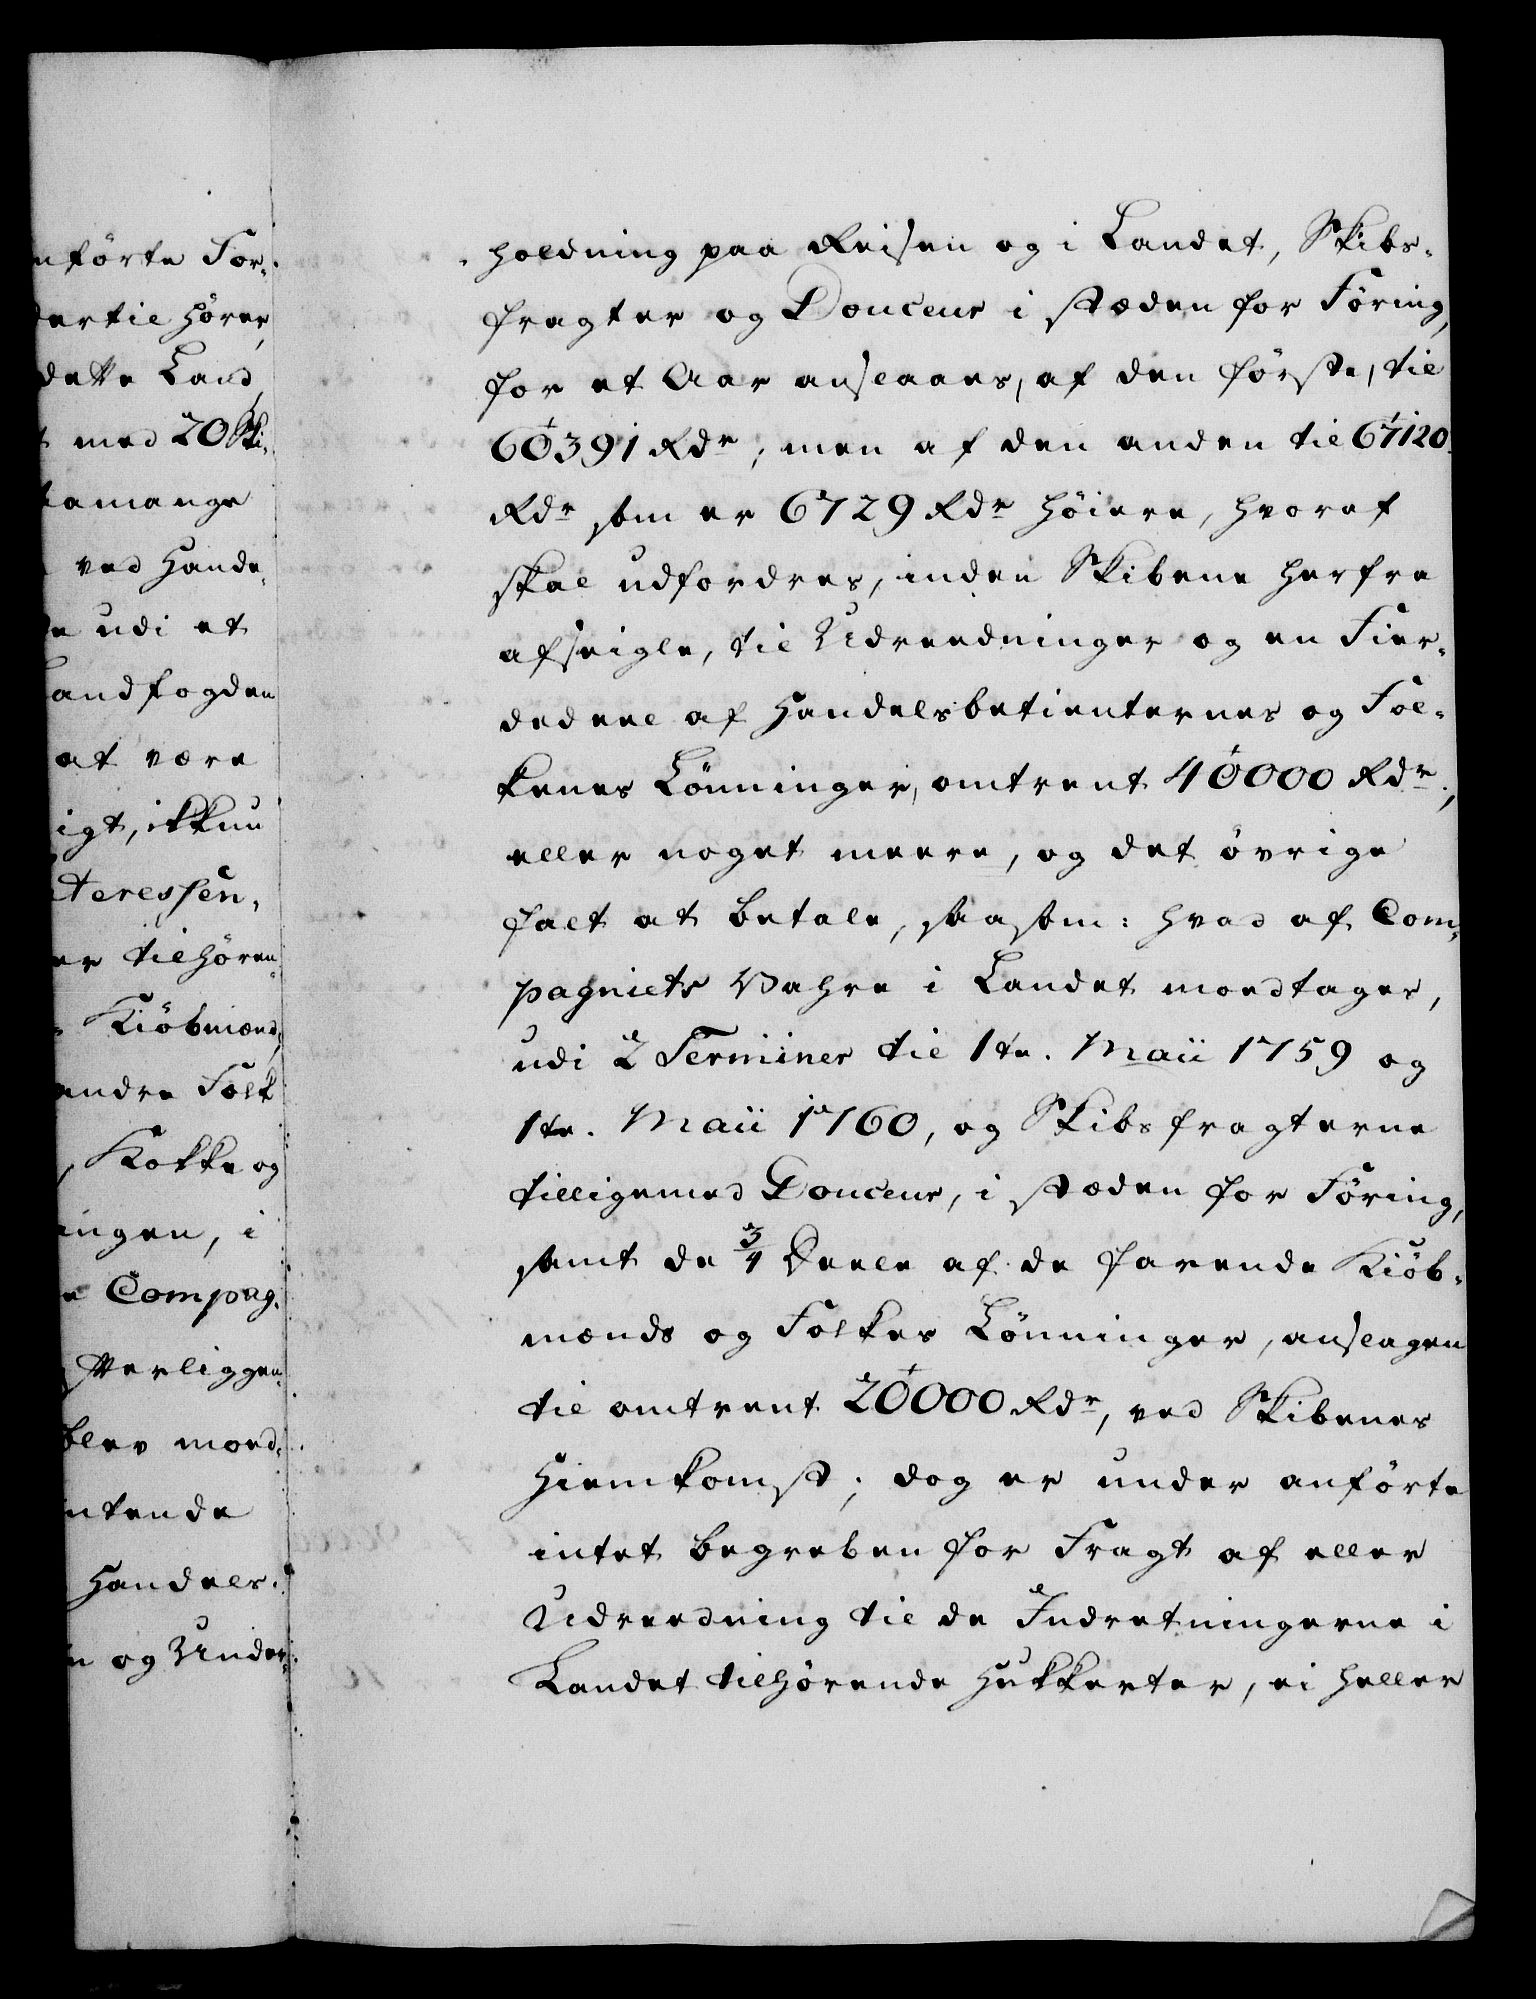 nførte For-
dertil hører,
dette Land,
t med 20 Ski-
samange
ved Hande-
e udi et
Landfogden
at være
igt, ikkun
nteressen-
er tilhøren-
Kiöbmænd,
andre Folk
, Kokke og
ingen, i
e Compag-
efterliggen-
blev mod-
ntende
Handels-
n og Under-
holdning paa Reisen og i Landet, Skibs-
fragter og Douceur i stæden for Föring,
for et Aar anslaaes, af den förste, til
60391 Rdr; men af den anden til 67120
Rdr som er 6729 Rdr höiere, hvoraf
skal udfordres, inden Skibene herfra
afseigle, til Udreedninger og en Fier-
dedeel af Handelsbetienternes og Fol-
kenes Lönninger, omtrent 40000 Rdr;
eller noget meere, og det övrige
falt at betale, saasom: hvad af Com-
pagniets Vahre i Landet modtages,
udi 2 Terminer til 1te. Maii 1759 og
1te. Maii 1760, og Skibsfragterne
tilligemed Douceur, i stæden for Föring,
samt de 3/4 Deele af de farende Kiöb-
mænds og Folkes Lönninger, anslagen
til omtrent 20000 Rdr, ved Skibenes
Hiemkomst; dog er under anförte
intet begreben for Fragt af eller
Udreedning til de Indretningerne i
Landet tilhörende Hukkerter, ei heller